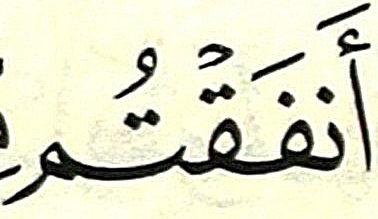 أَنفَقۡتُم